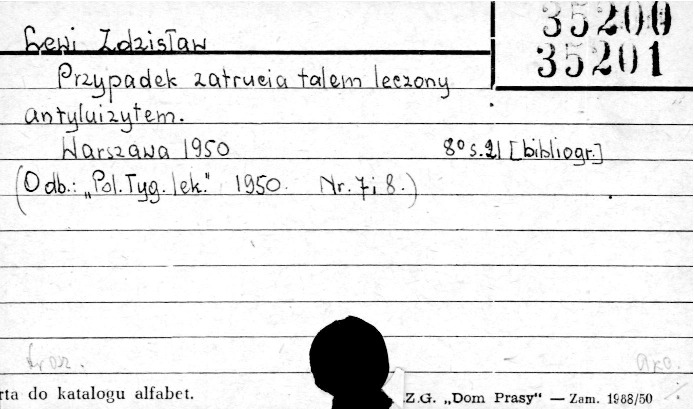 Lewi Zdzisław
35200
35201
Przypadek zatrucia talem leczony
antyluizytem.
Warszawa 1950 8° s. 21 [bibliogr.]
(Odb.: „Pol. Tyg. lek." 1950. Nr. 7 i 8.)
brosz.
rta do katalogu alfabet.
Z.G. „Dom Prasy" — Zam. 1988/50